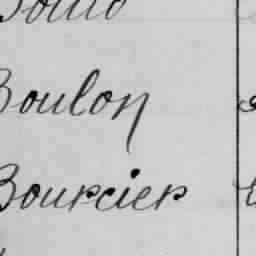 Boulon
Bourcier